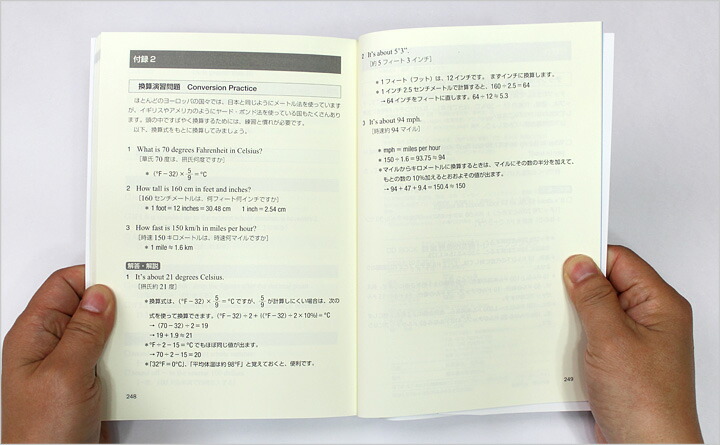 付録 2
換算演習問題　Conversion Practice
ほとんどのヨーロッパの国々では、日本と同じようにメートル法を使っています
が、イギリスやアメリカのようにヤード・ポンド法を使っている国もたくさんあり
ます。頭の中ですばやく換算するためには、練習と慣れが必要です。
以下、換算式をもとに換算してみましょう。
1 What is 70 degrees Fahrenheit in Celsius?
［華氏 70 度は、摂氏何度ですか］
＊ (°F − 32) × 5/9 = °C
2 How tall is 160 cm in feet and inches?
［160 センチメートルは、何フィート何インチですか］
＊ 1 foot = 12 inches = 30.48 cm　1 inch = 2.54 cm
3 How fast is 150 km/h in miles per hour?
［時速 150 キロメートルは、時速何マイルですか］
＊ 1 mile ≈ 1.6 km
解答・解説
1 It's about 21 degrees Celsius.
［摂氏約 21 度］
＊換算式は、(°F − 32) × 5/9 = °C ですが、5/9 が計算しにくい場合は、次の
式を使って換算できます。(°F − 32) ÷ 2 + ((°F − 32) ÷ 2 × 10%) = °C
→ (70 − 32) ÷ 2 = 19
→ 19 + 1.9 ≈ 21
＊°F ÷ 2 − 15 = °C でもほぼ同じ値が出ます。
→ 70 ÷ 2 − 15 = 20
＊「32°F = 0°C」、「平均体温は約 98°F」と覚えておくと、便利です。
248
2 It's about 5'3".
［約 5 フィート 3 インチ］
＊ 1 フィート（フット）は、12 インチです。まずインチに換算します。
＊ 1 インチ 2.5 センチメートルで計算すると、160 ÷ 2.5 = 64
→ 64 インチをフィートに直します。64 ÷ 12 ≈ 5.3
3 It's about 94 mph.
［時速約 94 マイル］
＊ mph = miles per hour
＊ 150 ÷ 1.6 = 93.75 ≈ 94
＊マイルからキロメートルに換算するときは、マイルにその数の半分を加えて、
もとの数の 10%加えるとおおよその値が出ます。
→ 94 + 47 + 9.4 = 150.4 ≈ 150
249